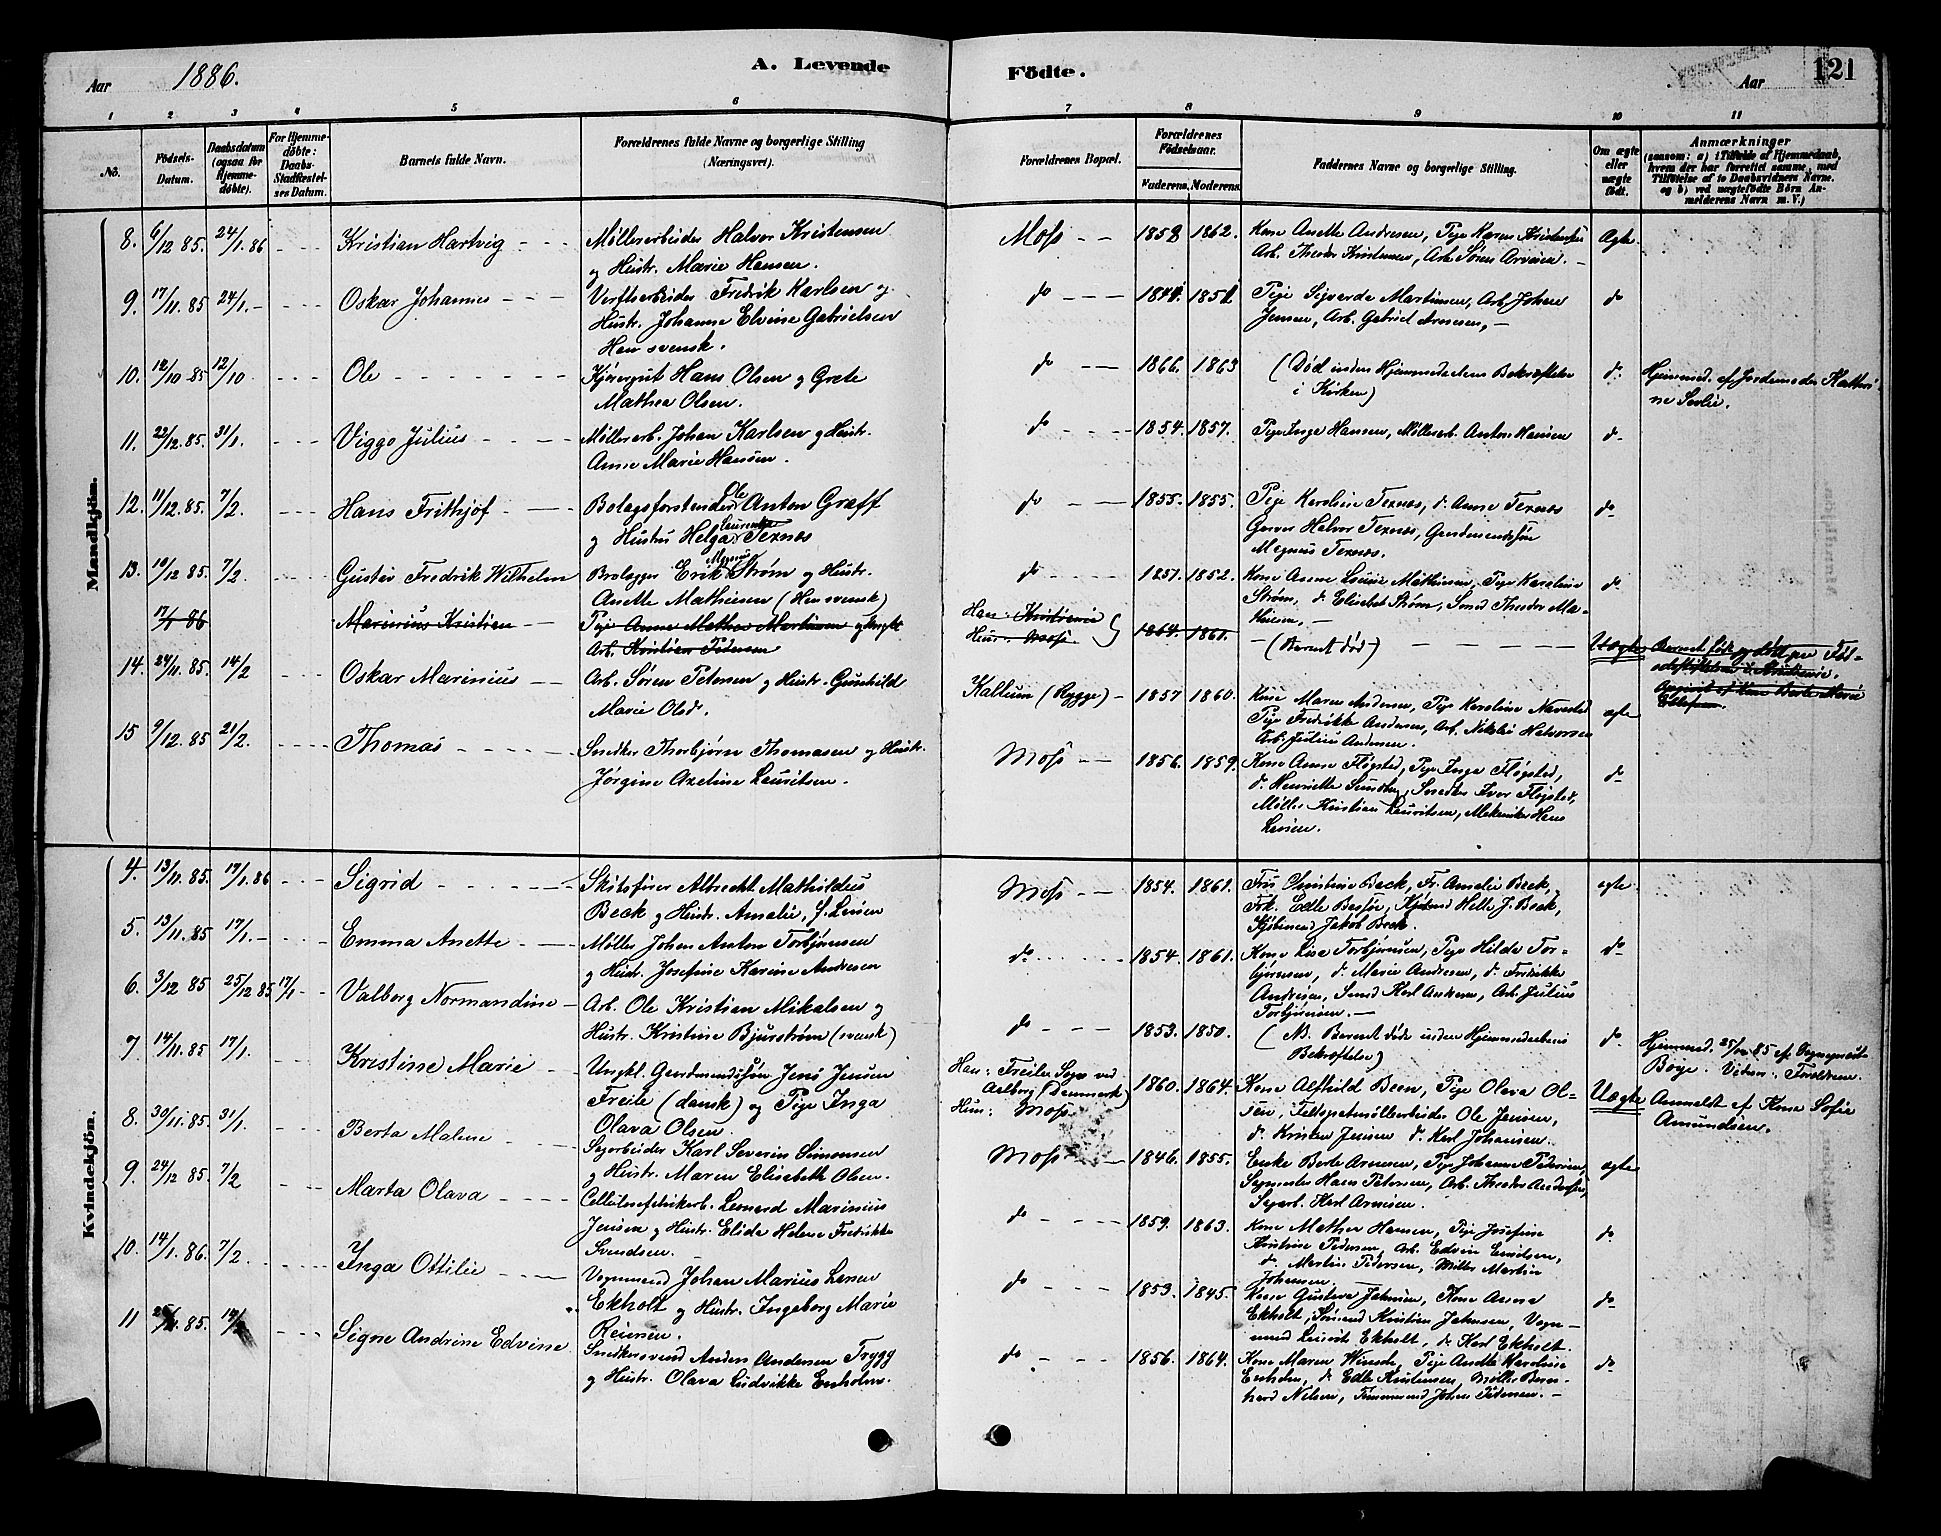 Aar 1886. A. Levende Födte. Aar 121
1 2 3 4 5 6 7 8 9 10 11
No. Födsels-Datum. Daabsdatum (ogsaa for Hjemme-döbte). For Hjemme-döbte: Daabs-Stadfæstel-ses Datum. Barnets fulde Navn. Forældrenes fulde Navne og borgerlige Stilling (Næringsvei). Forældrenes Bopæl. Forældrenes Födselsaar. Faderens. Moderens. Faddernes Navne og borgerlige Stilling. Om ægte eller uægte födt. Anmærkninger (saasom: a) i Tilfælde af Hjemmedaab, hvem der har forrettet samme, med Tilföielse af to Daabsvidners Navne, og b) ved uægtefödte Börn An-melderens Navn m. V.)
Mandkjön.
8. 6/12 85. 24/1. 86 Kristian Hartvig Møllerarbeider Halvor Kristensen
og Hustr. Marie Hansen.
Moss 1858 1862. Kone Anette Andresen, Pige Karen Kristensen
Arb. Theodor Kristensen, Arb. Søren Arvesen. Ægte.
9. 17/11. 85 24/1. Oskar Johannes Verftsarbeider Fredrik Karlsen og
Hustr. Johanne Elvine Gabrielsen
Han svensk.
do 1844. 1851. Pige Sigvarda Martinsen, Arb. Johan
Jensen, Arb. Gabriel Arnesen, do
10. 12/10 85 12/10 Ole Kjøregut Hans Olsen og Grete
Mathea Olsen.
do 1866. 1863 (Død inden Hjemmedaabens Bekræftelse
i Kirken) do Hjemmed. af Jordemoder Kathri-
ne Sælie.
11. 23/12. 85. 31/1. Viggo Julius Møllerarb. Johan Karlsen og Hustr.
Anne Marie Hansen.
do 1854. 1857. Pige Inga Hansen, Møllerarb. Anton Hansen do
12. 11/12. 85. 7/2. Hans Frithjof Bolagsforstander Ole Anton Graff
og Hustru Helga Laurentze Texnæs
do 1855. 1855. Pige Karoline Texnæs, do Anna Texnæs
Garver Halvor Texnæs, Gaardmandssøn
Magnus Texnæs. do
13. 10/12. 85. 7/2. Gustav Fredrik Wilhelm Brolægger Erik Magnus Strøm og Hustr.
Anette Mathiesen (Han svensk)
do 1851. 1852. Kone Anne Louise Mathiesen, Pige Karoline
Strøm, do Elisabet Strøm, Smed Theodor Ma-
thiesen, do
17/1 86 Marinius Kristian Pige Anne Mathea Martinsen og Ungkl.
Arb. Kristian Pedersen
Han: Kristiania
Hun: Moss 1864. 1861. (Barnet død) Uægte Barnet født
14. 24/11. 85. 14/2 Oskar Marinius Arb. Søren Petersen og Hustr. Gunhild
Marie Olsd.
Kallum (Rygge) 1857 1860. Kone Maren Andersen, Pige Karoline Navestad
Pige Fredrikke Andersen, Arb. Nikolai Halvorsen
Arb. Julius Andersen. ægte
15 9/12. 85 21/2. Thomas Snedker Thorbjørn Thomasen og Hustr.
Jørgine Axeline Lauritsen.
Moss 1856. 1859. Kone Anne Fløgsted, Pige Inga Fløgsted,
do Henriette Sundby, Snedker Iver Fløgsted,
Møller Kristian Lauritsen, Mekaniker Hans
Larsen. do
Kvindekjön.
4. 13/11. 85. 17/1. 86 Sigrid Skibsfører Albrecht Mathildus
Beck og Hustr. Amalie, f. Larsen
Moss 1854. 1861. Fru Christine Beck, Fr. Amalie Beck,
Frk. Edle Bessøe, Kjøbmd Helle J. Beck,
Kjøbmand Jakob Beck. ægte
5. 13/11. 85 17/1. Emma Anette Møller Johan Anton Torbjørnsen
og Hustr. Josefine Karine Andresen
do 1854. 1861. Kone Lise Torbjørnsen, Pige Hilda Tor-
bjørnsen, do Marie Andresen, do Fredrikke
Andresen, Smed Karl Andresen, Arb. Julius
Torbjørnsen. do
6. 3/12 85 25/12 85 17/1 Valborg Normandine Arb. Ole Kristian Mikalsen og
Hustr. Kristine Bjurstrøm (svensk)
do 1853. 1850. (NB. Barnet døde inden Hjemmedaabens
Bekræftelse) do Hjemmed. 25/12 85 af Sognepræst
Boye. Vidner: Forældrene.
7 14/11. 85 17/1. Kristine Marie Ungkl. Gaardmandssøn Jens Jensen
Freile (dansk) og Pige Inga
Olava Olsen.
Han: Freilev Sogn ved
Aalborg (Danmark)
Hun: Moss. 1860. 1864. Kone Alfhild Been, Pige Olava Ol-
sen, Feltspatmøllearbeider Ole Jensen,
do Kristen Jensen do Karl Johansen. Uægte Anmeldt af Kone Sofie
Amundsen.
8. 30/11. 85 31/1. Berta Malene Sagarbeider Karl Severin Simonsen
og Hustr. Maren Elisabeth Olsen.
Moss 1846. 1855. Enke Berte Arnesen, Pige Johanne Pedersen,
Sagmester Hans Petersen, Arb. Theodor Andersen,
Sagarb. Karl Arnesen. ægte
9. 24/12 85. 7/2 Marta Olava Cellulosefabrikarb. Leonard Marinius
Jensen og Hustr. Elida Helene Fredrikke
Svendsen.
do 1859. 1863. Kone Mathea Hansen, Pige Josefine
Kristine Pedersen, Arb. Edvin Emilsen,
do Martin Pedersen, Møller Martin
Johansen. do
10. 14/1. 86. 7/2. Inga Ottilie Vognmand Johan Marius Larsen
Ekholt og Hustr. Ingeborg Marie
Reiersen.
do 1853. 1845. Kone Gustava Jahnsen, Kone Anna
Ekholt, Sømand Kristian Jahnsen, Vogn-
mand Laurits Ekholt, do Karl Ekholt. do
11 85. 14/2 Signe Andrine Edvine Snedkersvend Anders Andersen Trygg
og Hustr. Olava Ludvikke Enholm.
do 1856. 1864. Kone Maren Karoline
Enholm, do Edle Kristensen, Møller Bern-
hard Nilsen, Tømmermand Johan Pedersen. do